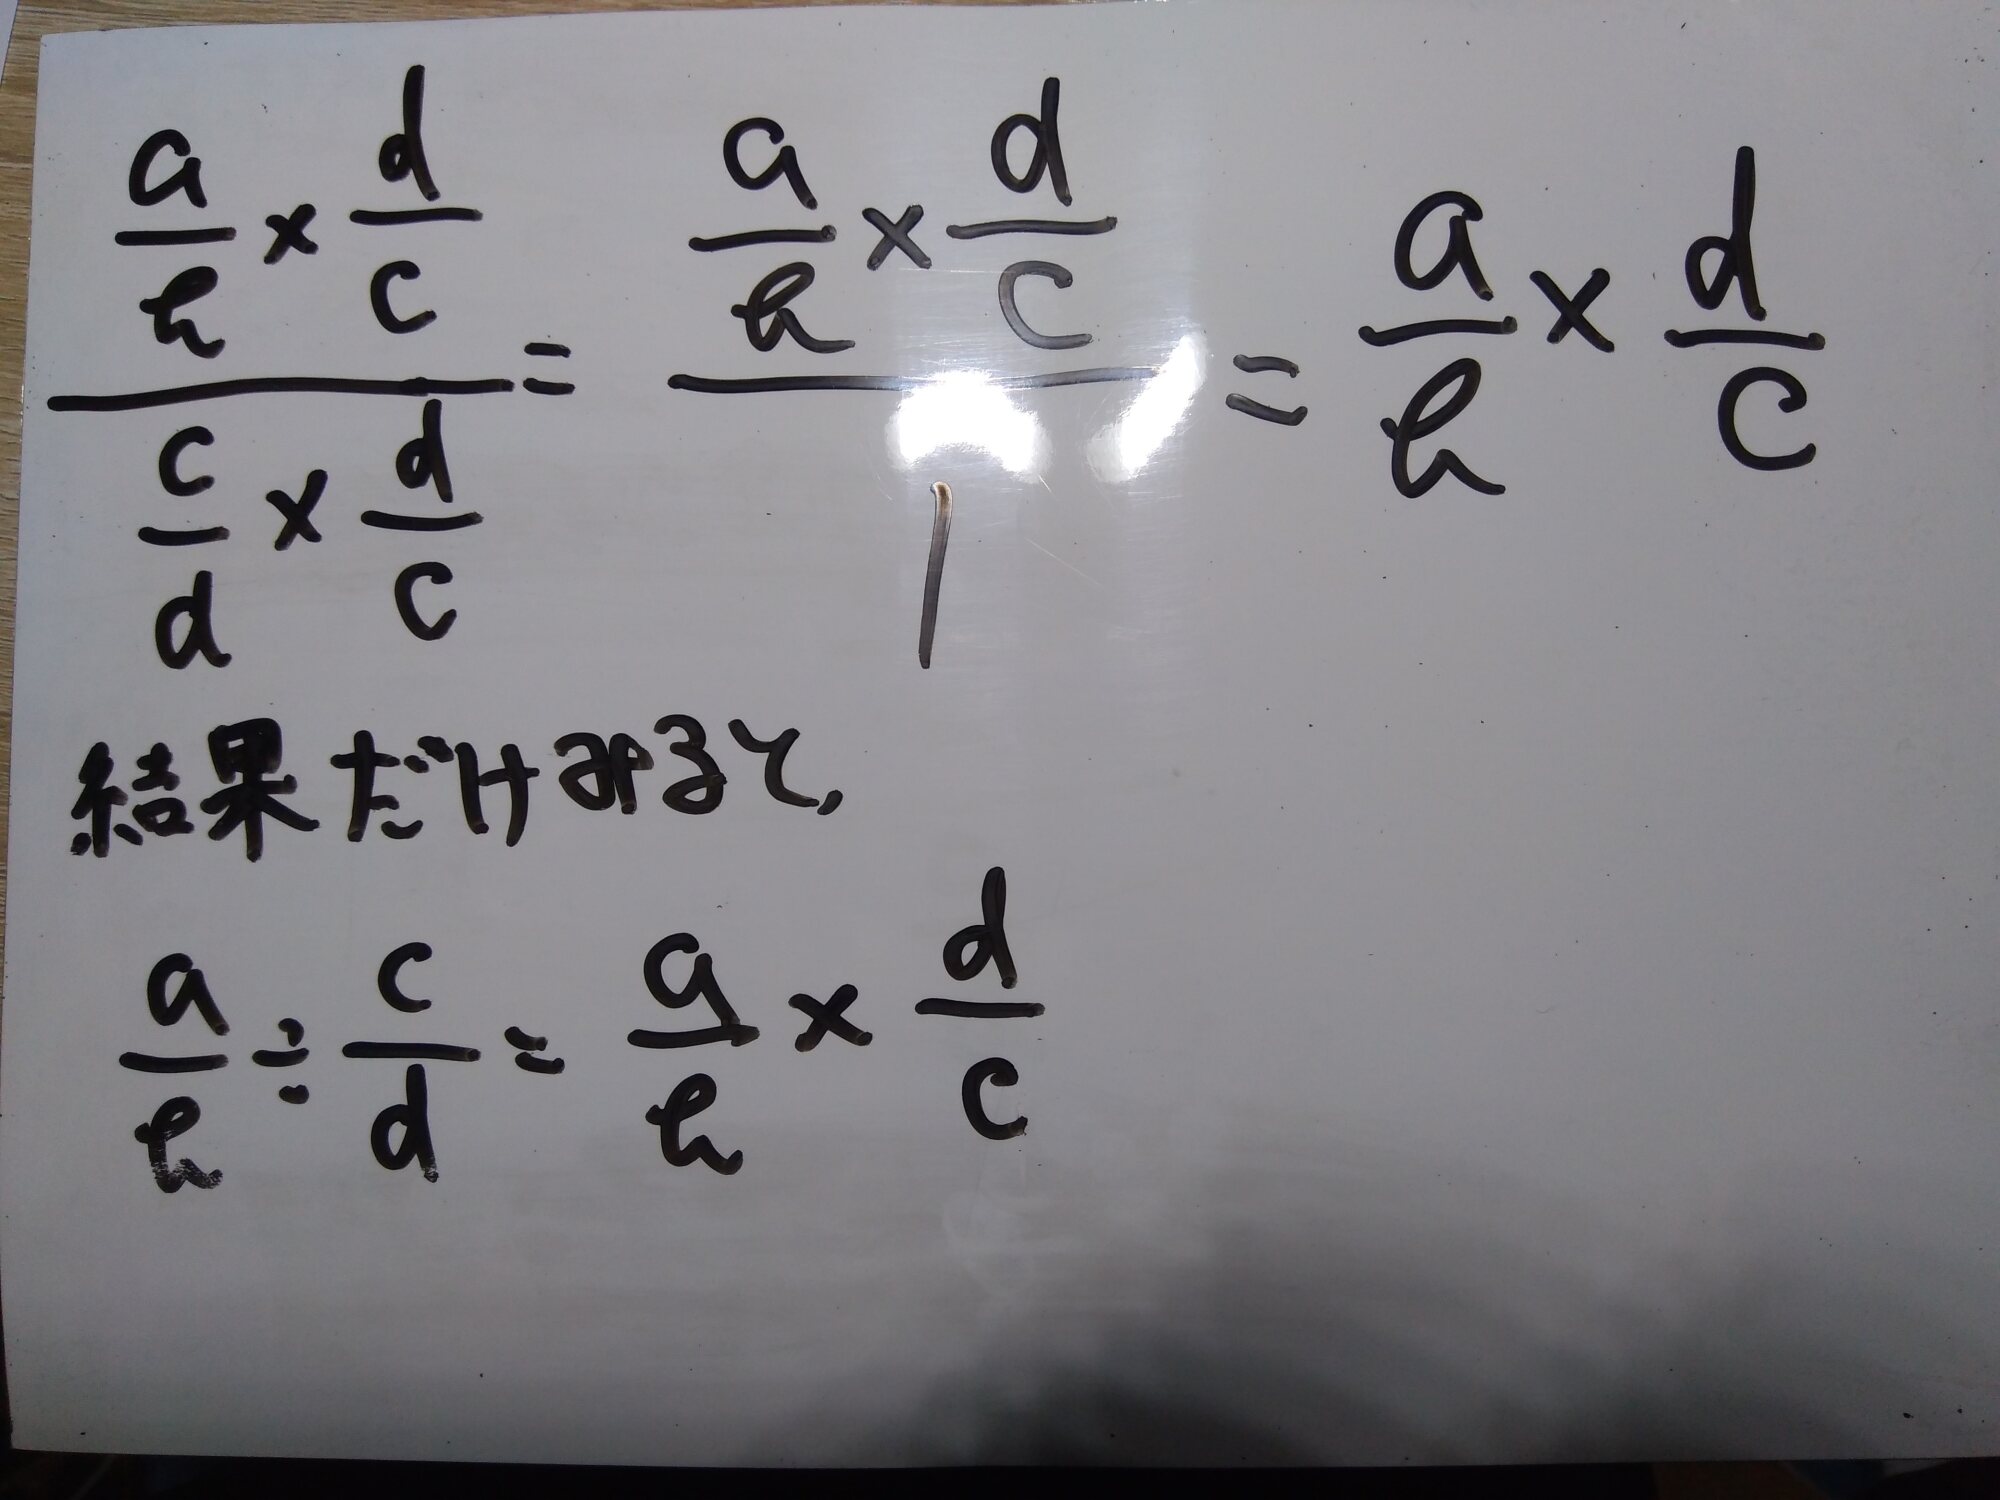 a/b × d/c
c/d × d/c
=
a/b × d/c
1
= a/b × d/c
結果だけみると,
a/b ÷ c/d = a/b × d/c